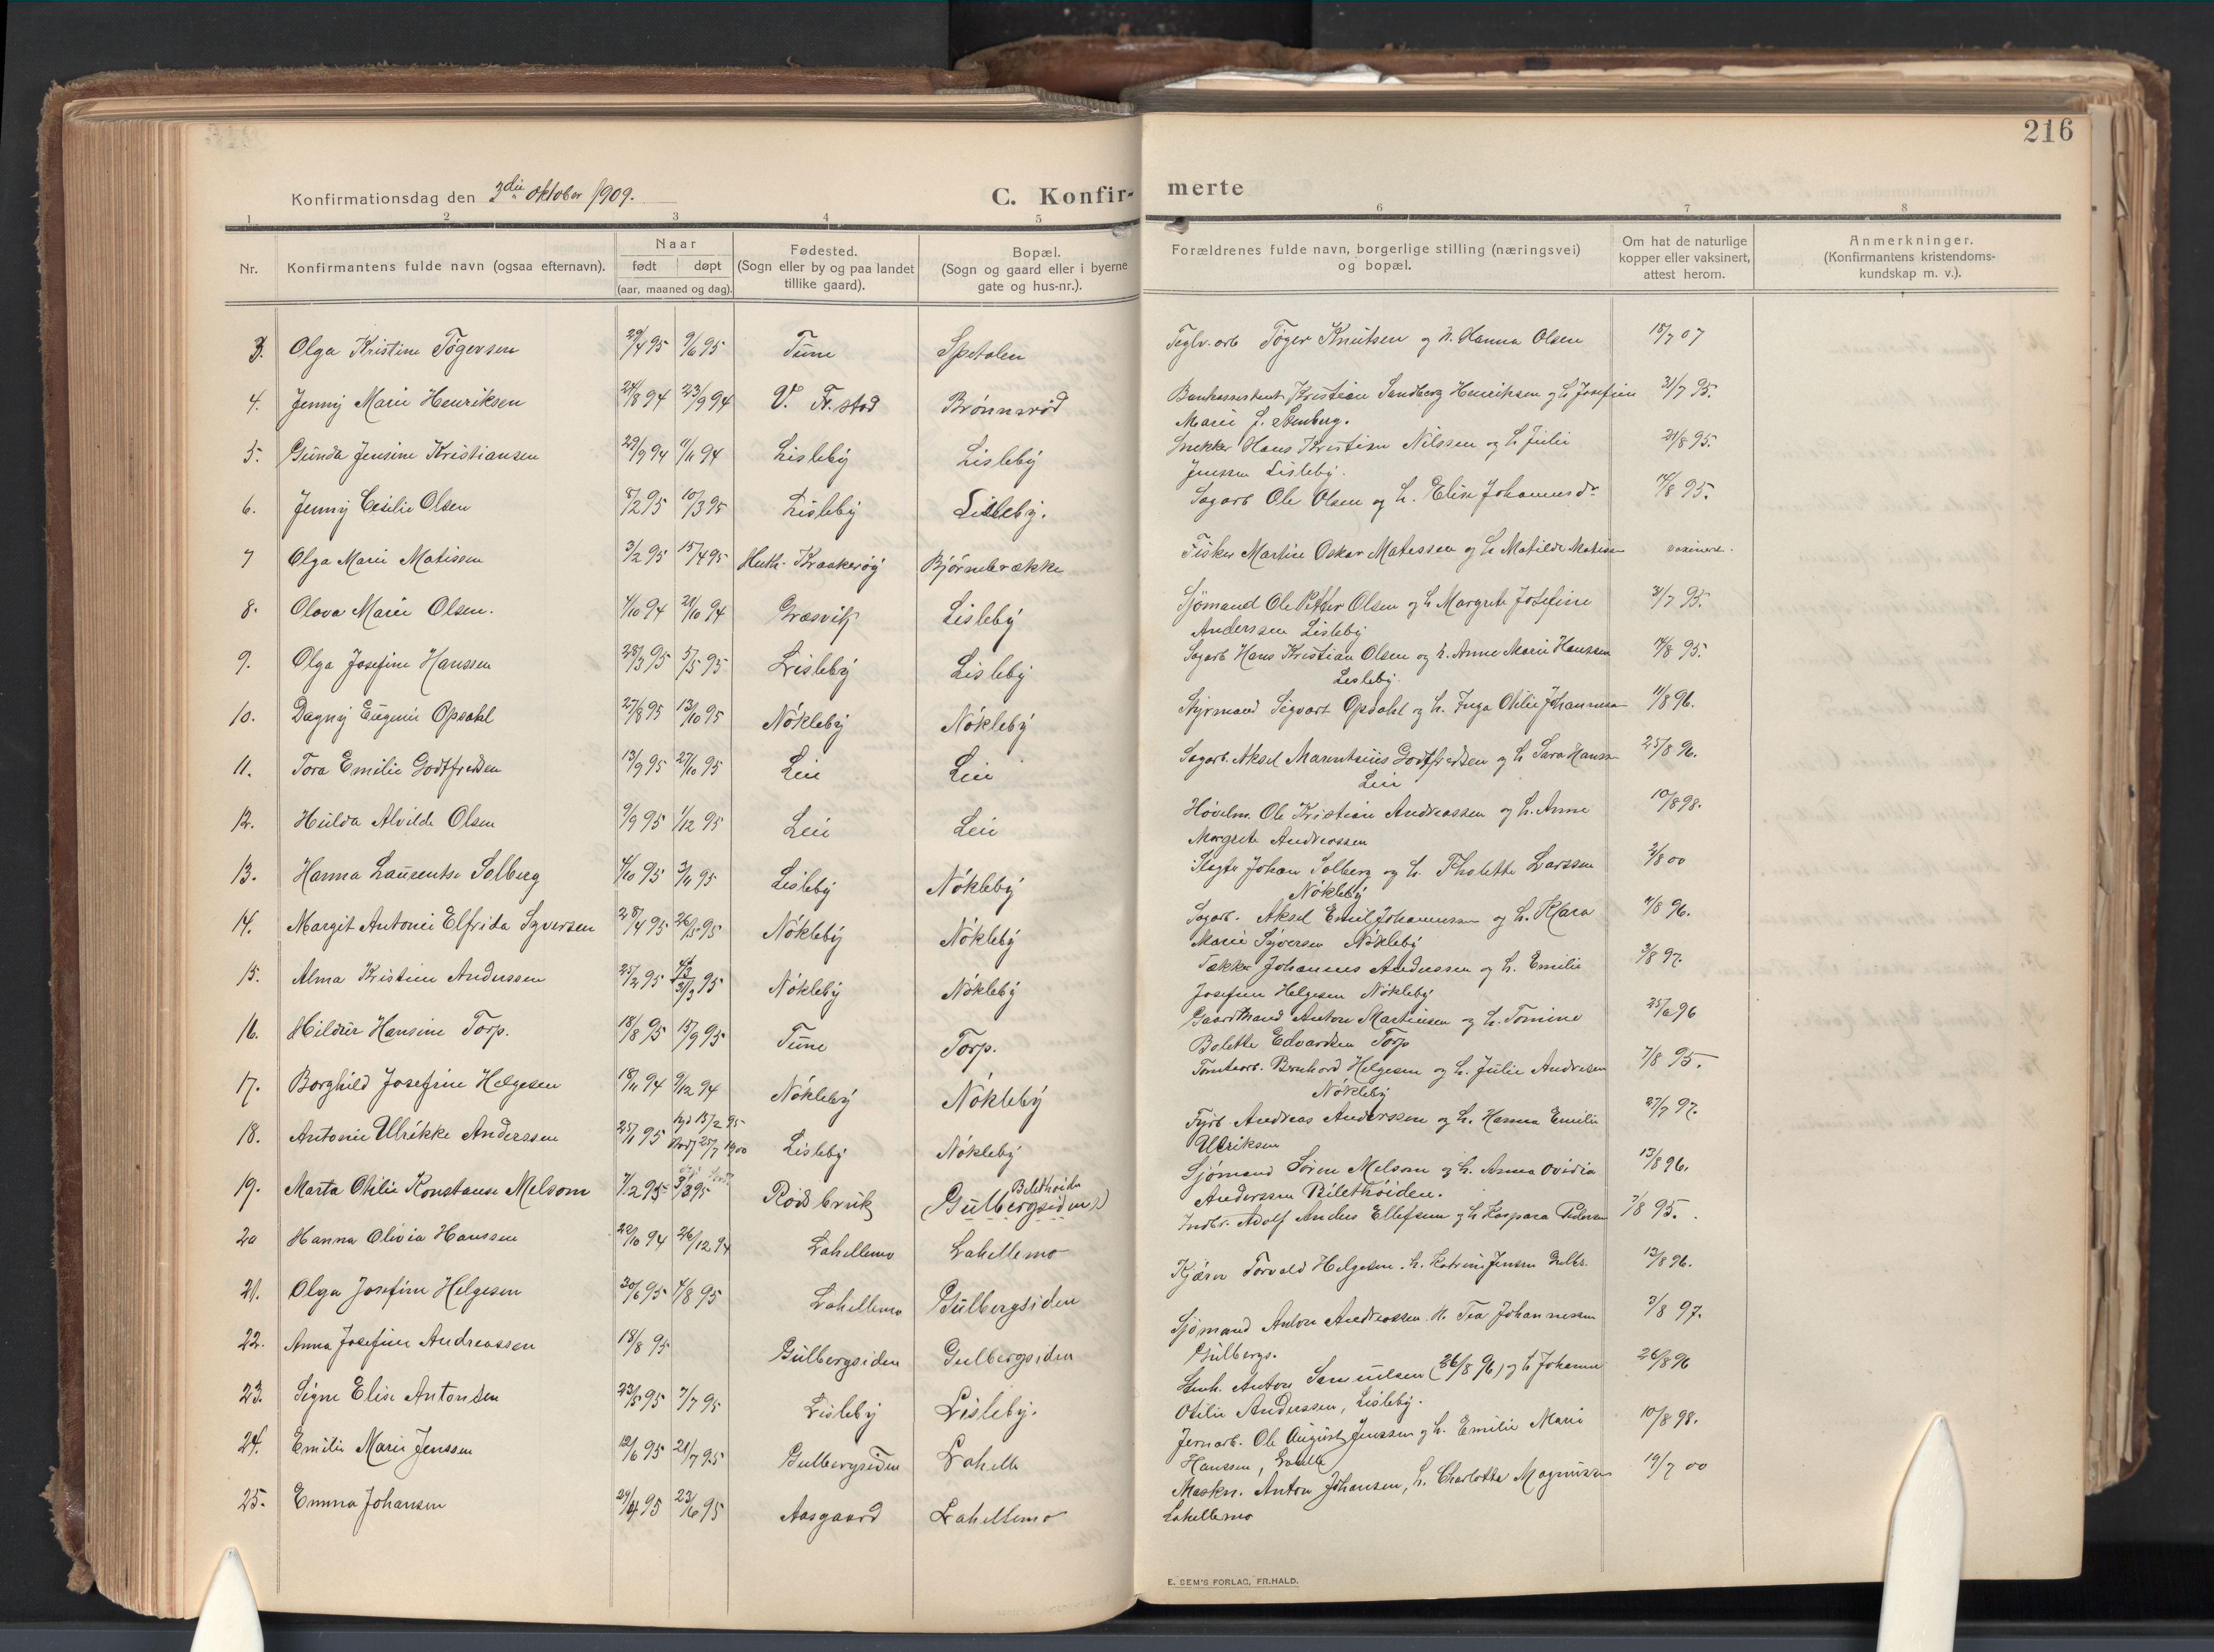 216
Konfirmationsdag den 3die Oktober 1909.
C. Konfir-
merte
1 2 3 4 5 6 7 8
Nr.
Konfirmantens fulde navn (ogsaa efternavn).
Naar
født døpt
(aar, maaned og dag).
Fødested.
(Sogn eller by og paa landet
tillike gaard).
Bopæl.
(Sogn og gaard eller i byerne
gate og hus-nr.).
Forældrenes fulde navn, borgerlige stilling (næringsvei)
og bopæl.
Om hat de naturlige
kopper eller vaksinert,
attest herom.
Anmerkninger.
(Konfirmantens kristendoms-
kundskap m. v.).
3. Olga Kristine Tøgersen 29/4 95 9/6 95 Tune Spetalen Teglv. arb Tøger Knutsen og h. Hanna Olsen 18/7 07
4. Jenny Marie Henriksen 24/8 94 23/9 94 V. Fr.stad Brönnsröd Kristian Sandberg Henriksen og h Josefine 31/7 95.
Marie f. Stenberg.
5. Gunda Jensine Kristiansen 29/9 94 11/11 94 Lisleby Lisleby Snekker Hans Kristian Nilssen og h Julie 21/8 95.
Jenssen Lisleby.
6. Jenny Cesilie Olsen 8/2 95 10/3 95 Lisleby Lisleby. Sagarb Ole Olsen og h. Elise Johannesdr 14/8 95.
7 Olga Marie Matissen 3/2 95 15/4 95 Huth. Kraakeröy Björnebrække Fisker Martin Oskar Matessen og h Matilde vaksinert.
8. Olava Marie Olsen. 4/10 94 21/10 94 Græsvik Lisleby Sjømand Ole Petter Olsen og h Margrete Josefine 31/7 95.
Anderssen Lisleby
9. Olga Josefine Hanssen 28/3 95 5/5 95 Lisleby Lisleby Sagarb Hans Kristian Olsen og h. Anne Marie Hanssen 14/8 95.
Lisleby.
10. Dagny Eugenie Opsahl 27/8 95 13/10 95 Nökleby Nökleby Styrmand Sigvart Opsahl og h. Inga Otilie Johannesen 11/8 96.
11. Tora Emilie Godtfredsen 13/9 95 27/10 95 Leie Leie Sagarb. Aksel Marentsius Godtfredsen og h Sara Hanss 25/8 96.
Leie
12. Hulda Alvilde Olsen 9/9 95 1/12 95 Leie Leie Høvelm. Ole Kristian Andreassen og h. Anne 10/8 98.
Margrete Andreassen
13. Hanna Laurentse Solberg 4/10 95 3/11 95 Lisleby Nökleby Johan Solberg og h. Tholette Larssen 2/8 00
Nökleby
14. Margit Antonie Elfrida Syversen 28/4 95 26/5 95 Nökleby Nökleby Sagarb. Aksel Emil Johannessen og h. Klara 11/8 96.
Marie Syversen Nökleby
15. Alma Kristine Anderssen 25/2 95 31/3 95 Nökleby Nökleby Johannes Anderssen og h. Emilie 3/8 97.
Josefine Helgesen Nökleby
16. Hildur Hansine Torp. 18/8 95 15/9 95 Tune Torp. Gaardmand Anton Martinsen og h. Tomine 25/6 96
Bolette Edvardsen Torp
17. Borghild Josefine Helgesen 18/11 94 9/12 94 Nökleby Nökleby Tomtearb. Bernhard Helgesen og h. Julie Andresen 7/8 95.
Nökleby
18. Antonie Ulrikke Anderssen 25/1 95 15/2 95 25/7 1900 Lisleby Nökleby Fyrb Andreas Anderssen og h. Hanna Emilie 27/7 97.
Ulriksen
19. Marta Otilie Konstanse Melsom 7/2 95 3/3 95 Röds bruk Bilethöiden (Gulbergsiden) Sjömand Sören Melsom og h. Anna Ovidia 13/8 96.
Anderssen Bilethöiden.
20 Hanna Olivia Hanssen 22/10 94 26/12 94 Lahellemo Lahellemo Indbr. Adolf Anders Ellefsen og h Kaspara Pedersen 7/8 95.
21. Olga Josefine Helgesen 30/6 95 4/8 95 Lahellemo Gulbergsiden Kjører Torvald Helgesen. h. Katrine Jensen 13/8 96.
22. Anna Josefine Andreassen 18/8 95 Gulbergsiden Gulbergsiden Sjømand Anton Andreassen. h. Tea Johannessen 3/8 97.
Gulbergs.
23. Signe Elise Antonsen 23/5 95 7/7 95 Lisleby Lisleby. Anton Samuelsen (26/8 96) og h Johanne 26/8 96
Otilie Anderssen, Lisleby.
24. Emilie Marie Jenssen 12/6 95 21/7 95 Gulbergsiden Lahelle Jernarb. Ole August Jenssen og h. Emilie Marie 10/8 98.
Hanssen, Lahelle
25. Emma Johansen 29/4 95 23/6 95 Aasgaard Lahellemo Maskn. Anton Johansen, h. Charlotte Magnussen 19/7 00
Lahellemo
E. SEM'S FORLAG, FR.HALD.